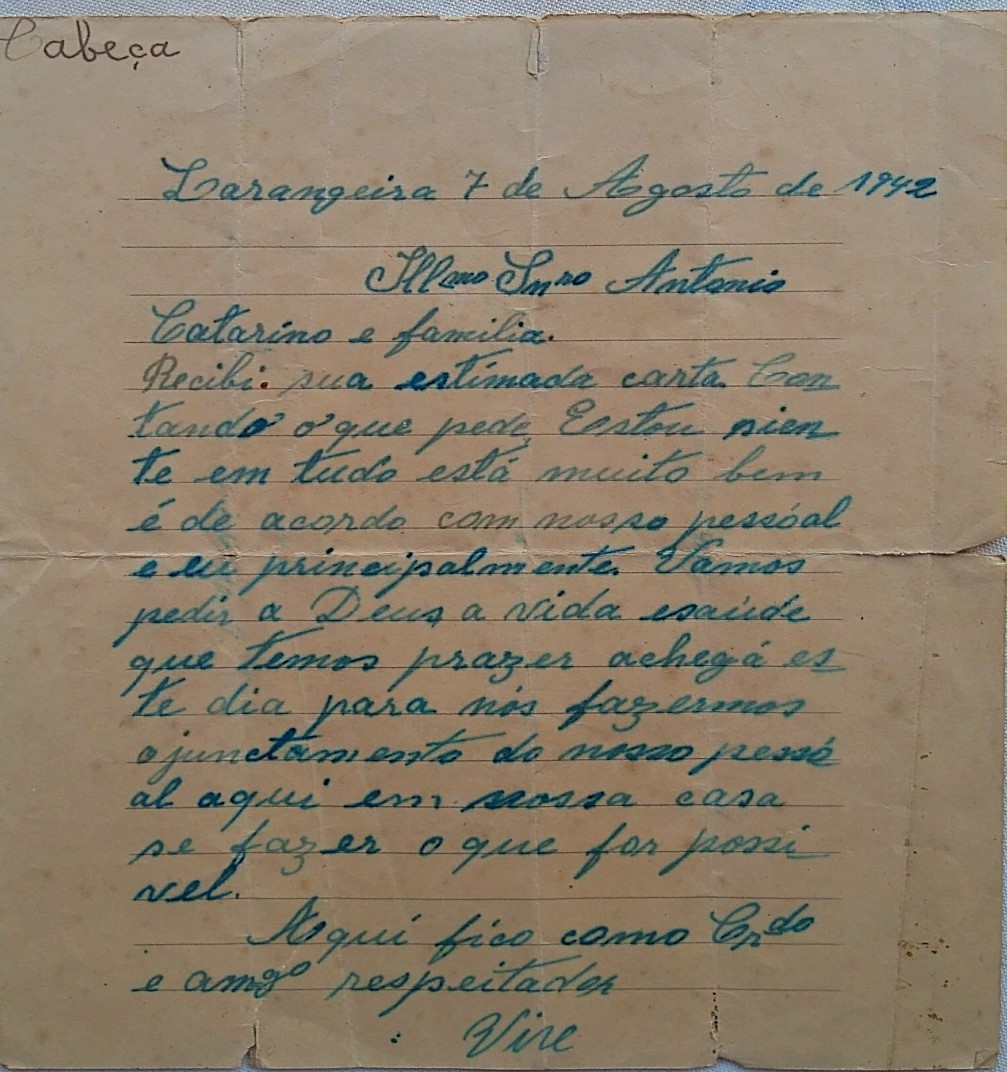 Cabeça
Larangeira 7 de Agosto de 1942
Illmo Snro Antonio
Catarino e familia.
Recibi. sua estimada carta Con
tando o que pede, Estou sien
te em tudo está muito bem
é de acordo com nosso pessóal
e eu principalmente. Vamos
pedir a Deus, a vida esaúde
que temos prazer achegá es
te dia para nós fazermos
ajunctamento do nosso pessó
al aqui em nossa casa
se fazer o que for possi
vel.
Aqui fico como Crdo
e amgo respeitador
Vire